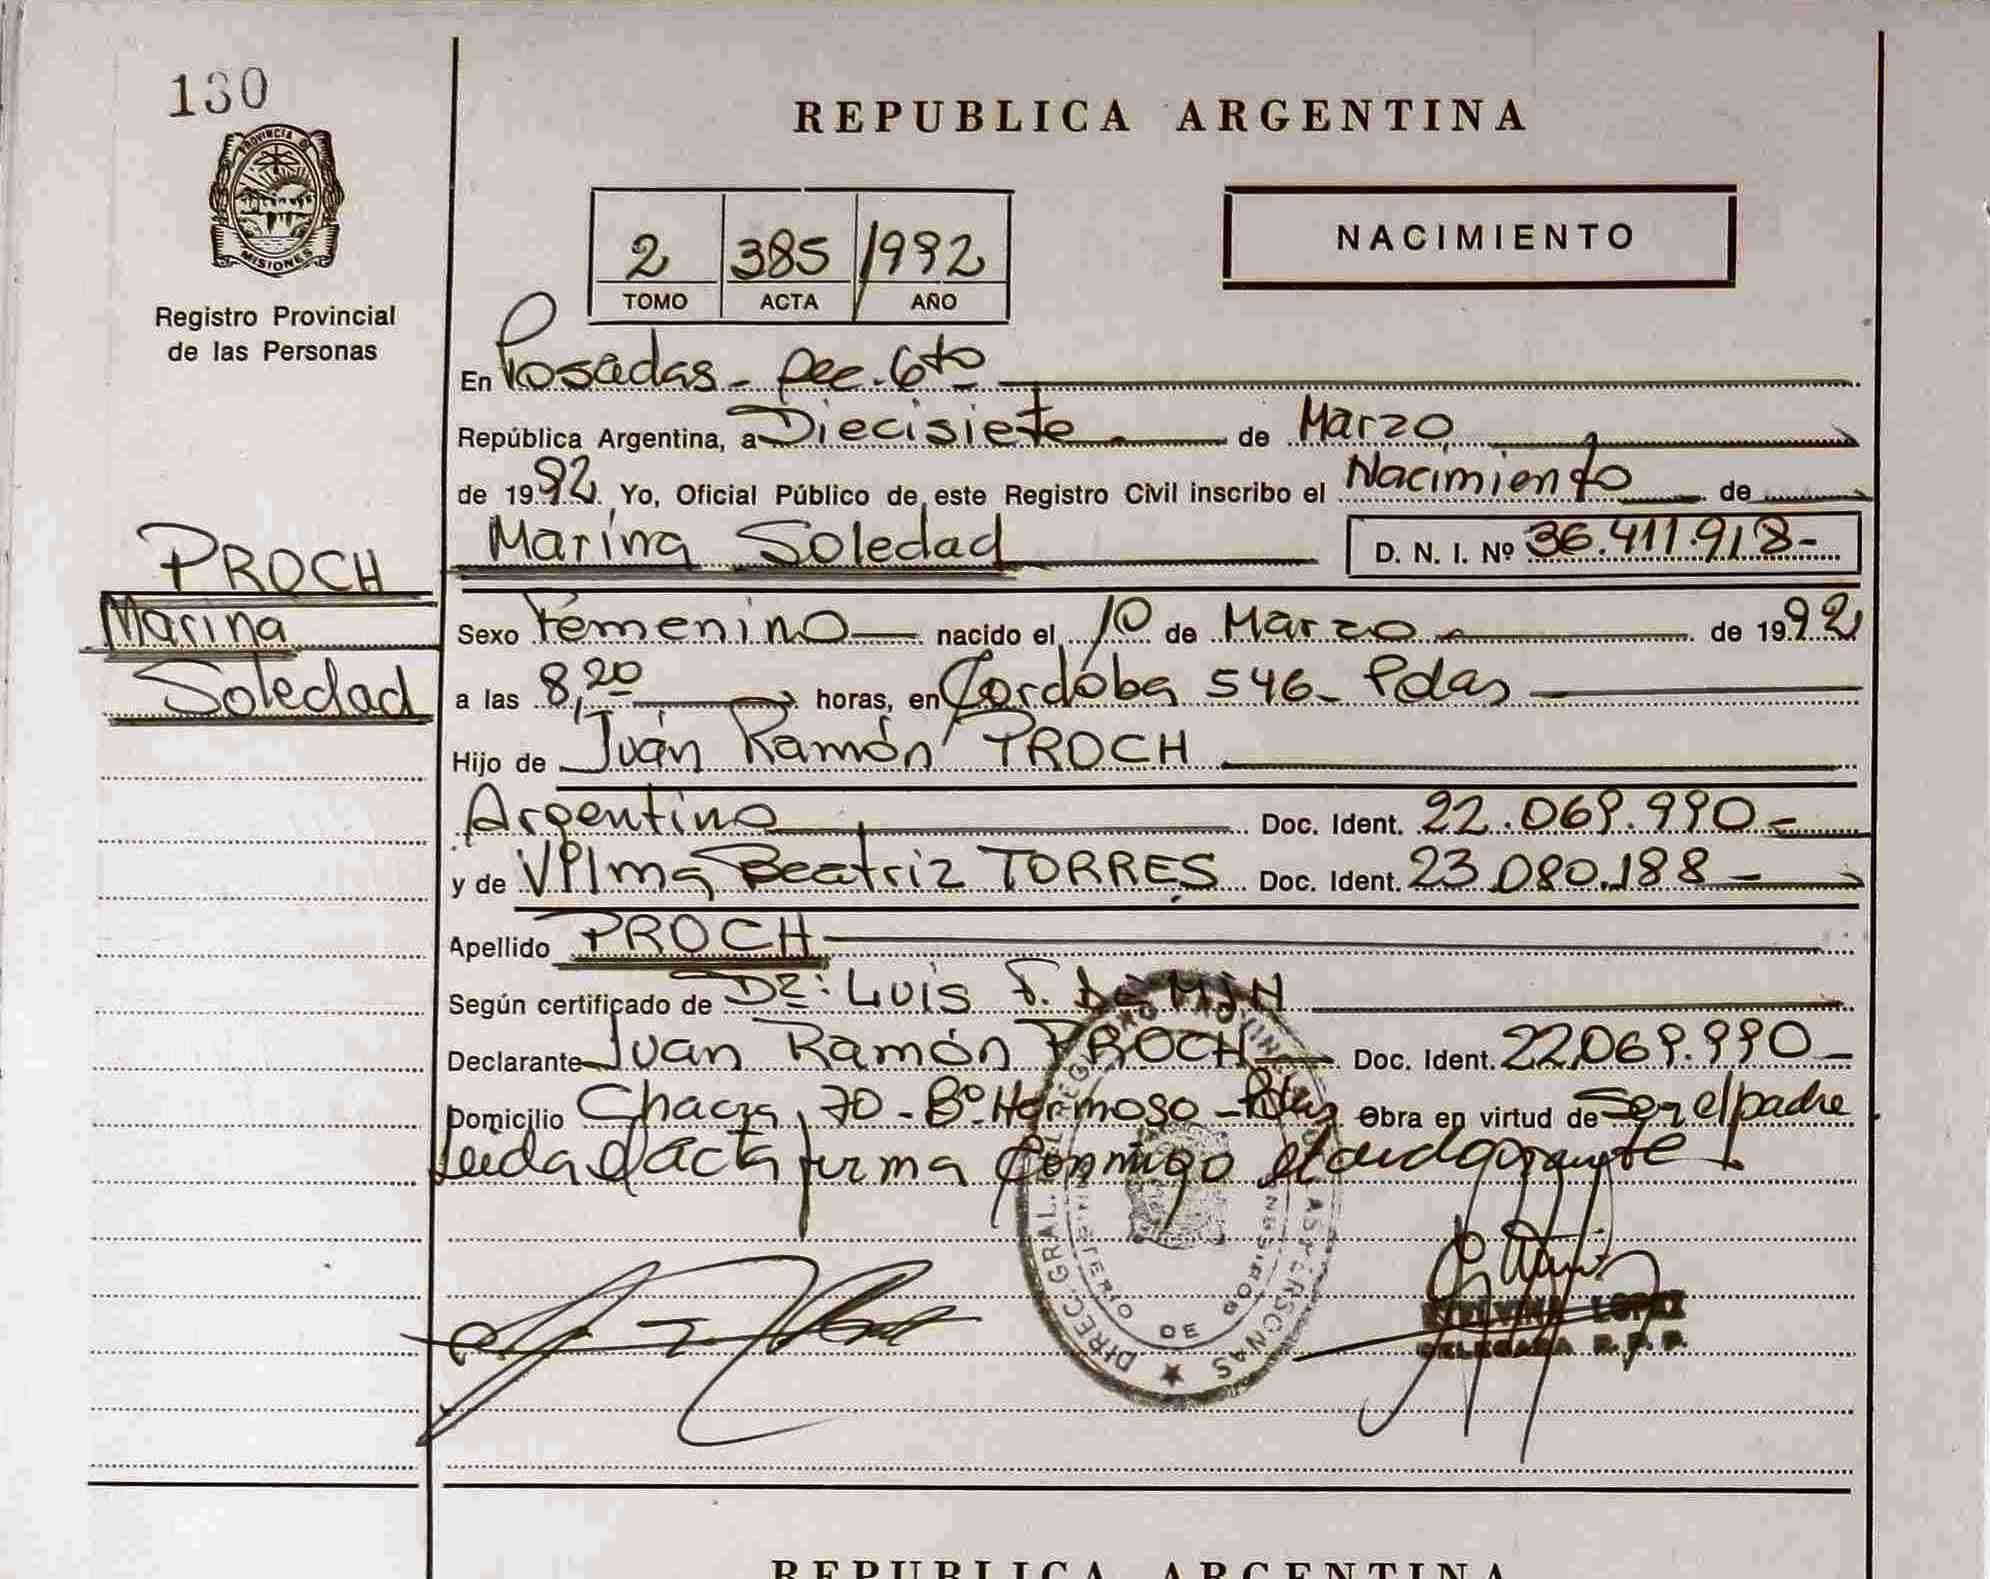 130
PROVINCIA DE
MISIONES
Registro Provincial
de las Personas
PROCH
Marina
Soledad
REPUBLICA ARGENTINA
2 385 1992
TOMO ACTA AÑO
NACIMIENTO
En Posadas - Dec. 6to
República Argentina, a Diecisiete de Marzo
de 1992. Yo, Oficial Público de este Registro Civil inscribo el Nacimiento de
Marina Soledad D. N. I. Nº 36.411.918-
Sexo Femenino nacido el 10 de Marzo de 1992
a las 8,20 horas, en Córdoba 546 - Pdas
Hijo de Juán Ramón PROCH
Argentino Doc. Ident. 22.069.990-
y de Vilma Beatriz TORRES Doc. Ident. 23.080.188-
Apellido PROCH
Según certificado de Dr: Luis F.
Declarante Juan Ramón PROCH Doc. Ident. 22069.990-
Domicilio Chacra 70 - Bº Hermoso - Pdas Obra en virtud de Ser el padre
Leida el acta firma conmigo el
DIREC. GRAL. DE PERSONAS
MINISTERIO DE
LOPEZ
DELEGADA R. P. P.
REPUBLICA ARGENTINA